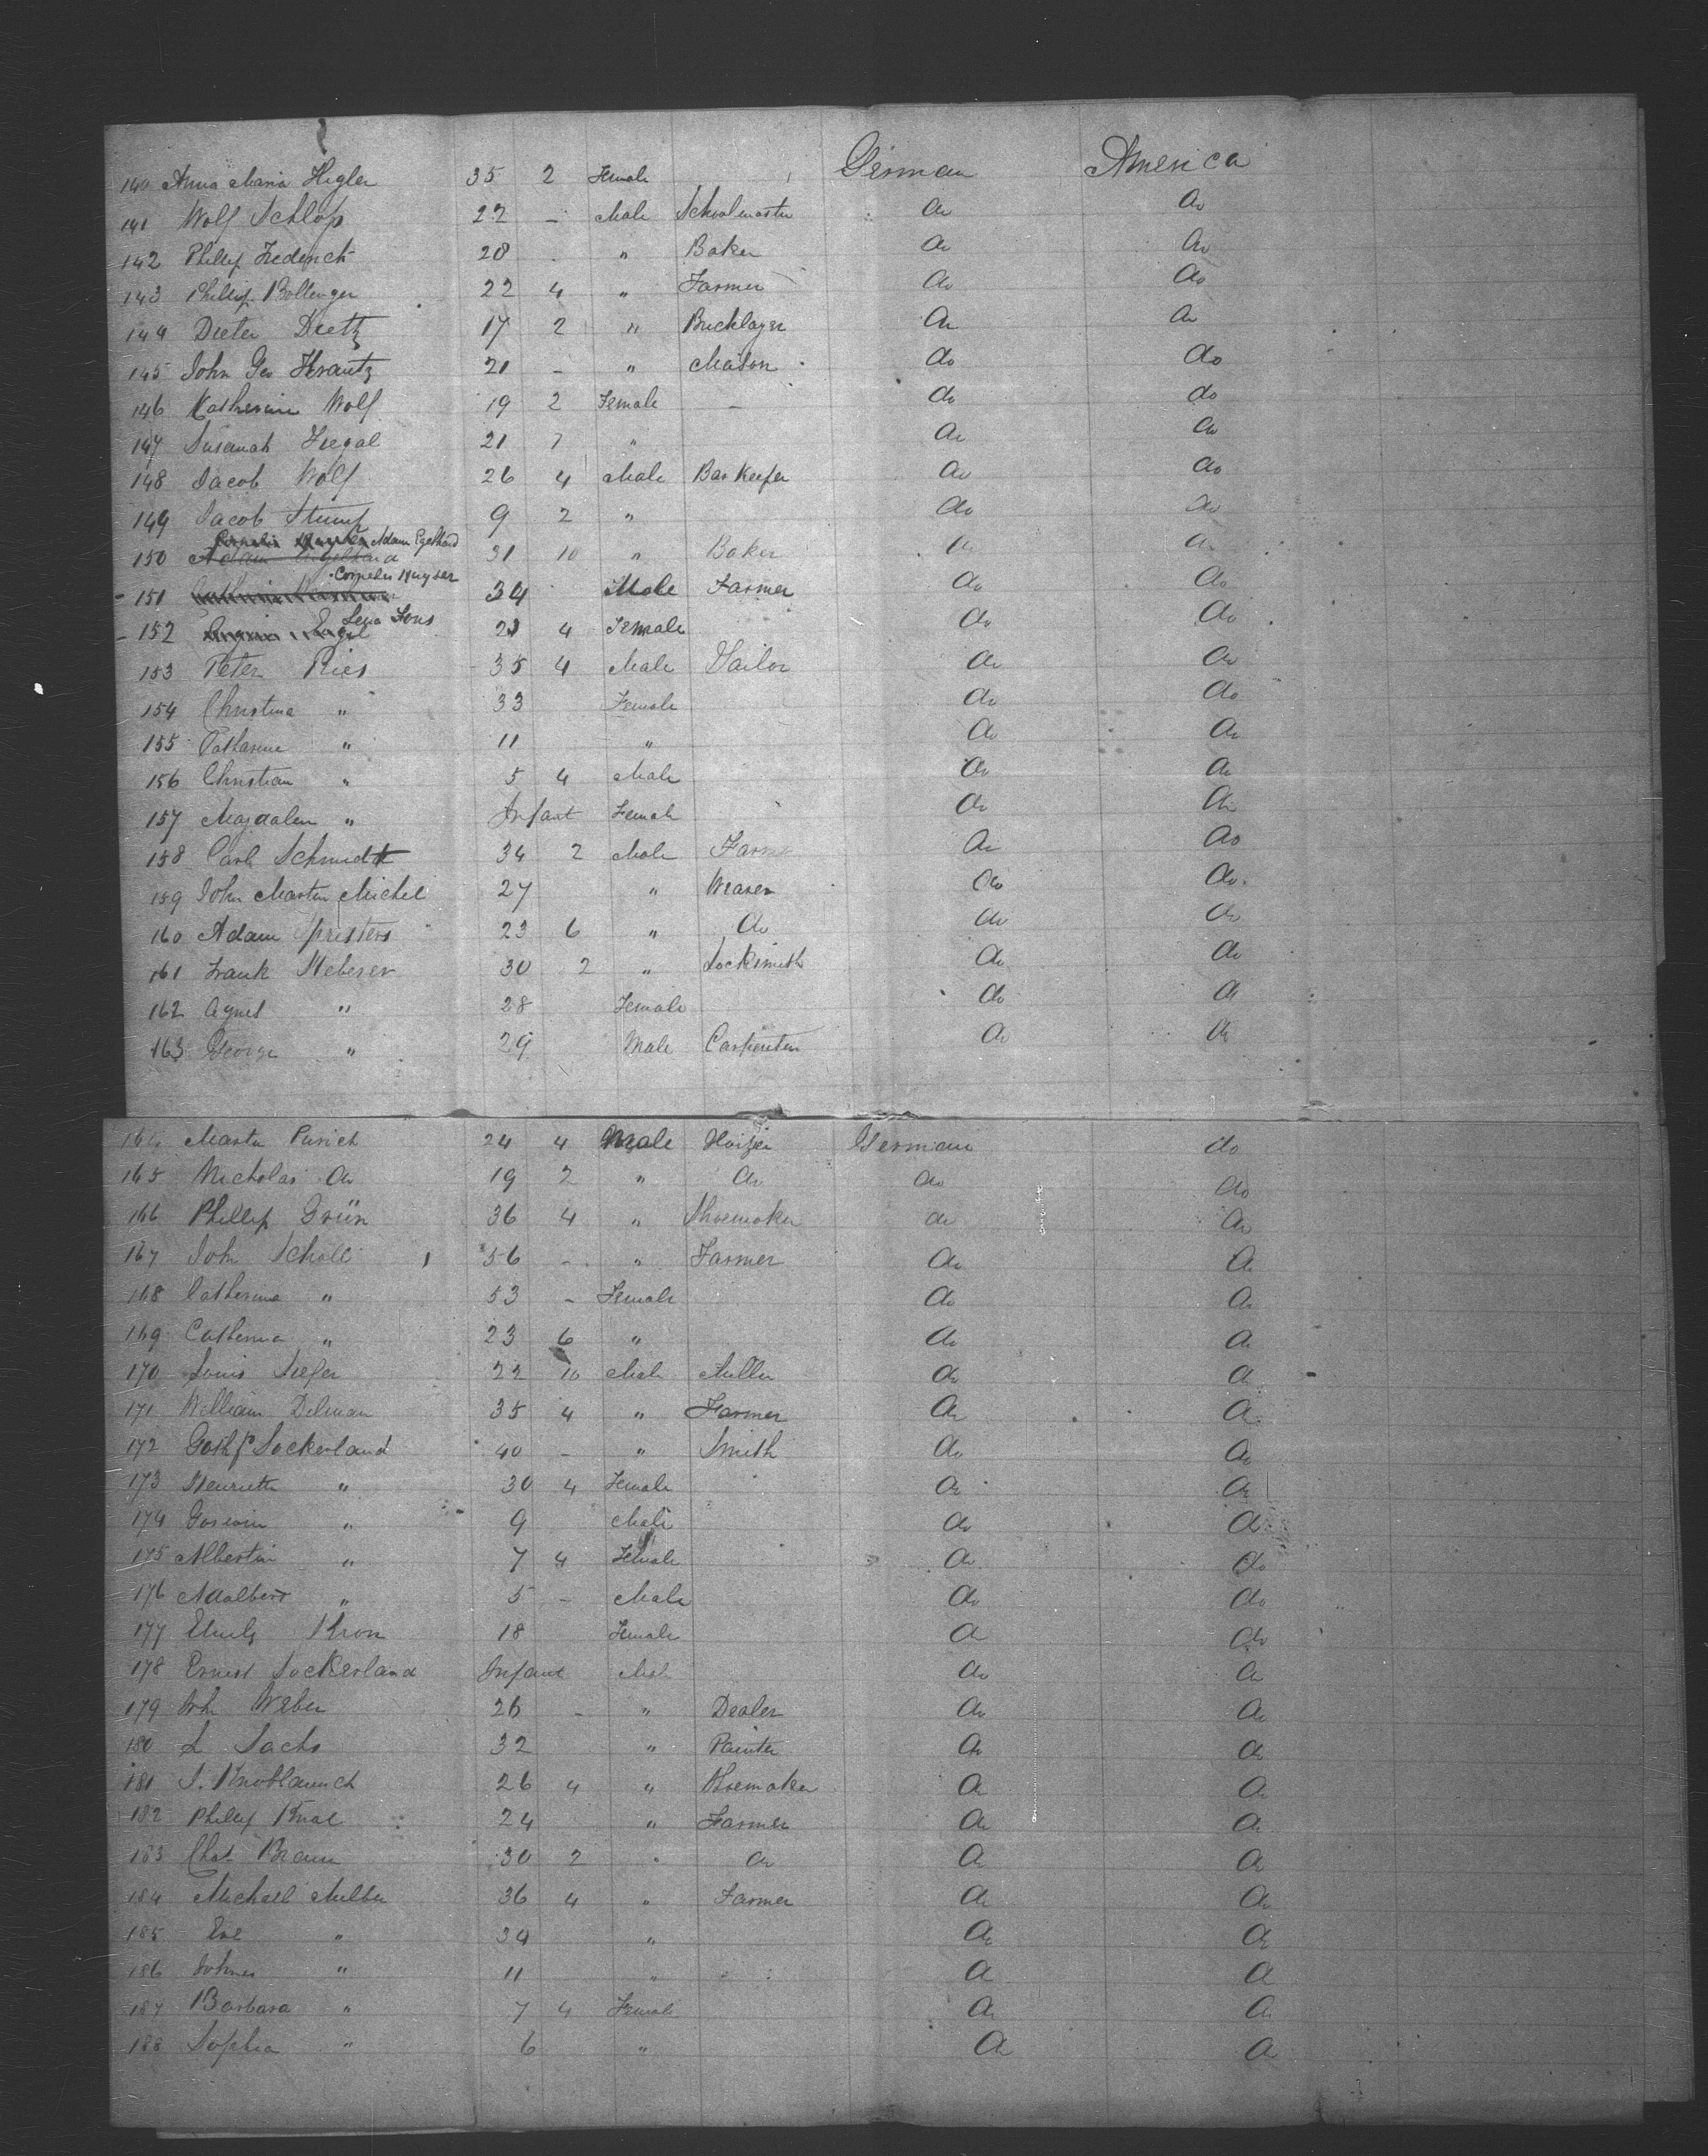 140 Anna Maria Higler 35 2 Female German America
141 Wolf Schlop 22 - Male Schoolmaster do do
142 Phillip Frederich 28 " Baker do do
143 Phillip Bollenger 22 4 " Farmer do do
144 Dieter Dietz 17 2 " Bricklayer do do
145 John Geo Krantz 21 - " Mason do do
146 Katherine Wolf 19 2 Female - do do
147 Susanah Fregal 21 7 " do do
148 Jacob Wolf 26 4 Male Bar Keefer do do
149 Jacob Stumf 9 2 " do do
Adam Egelhard
150 31 10 " Baker do do
Cornelis Huyser
151 34 Male Farmer do do
Lena Fons
152 23 4 Female do do
153 Peter Ries 35 4 Male Tailor do do
154 Christina " 33 Female do do
155 Catharine " 11 " do do
156 Christian " 5 4 Male do do
157 Magdalen " Infant Female do do
158 Carl Schmidt 34 2 Male Farmer do do
159 John Martin Michel 27 " Weaver do do
160 Adam 23 6 " do do do
161 Frank Heberer 30 2 " Locksmith do do
162 Agnes " 28 Female do do
163 George " 29 Male Carpenter do do
164 Martin Purich 24 4 Male German do
165 Nicholas do 19 2 " do do do
166 Phillip Grün 36 4 " Shoemaker do do
167 John Scholl 56 - " Farmer do do
168 Catherina " 53 - Female do do
169 Catherina " 23 6 " do do
170 Louis Siefer 22 10 Male Miller do do
171 William Delman 35 4 " Farmer do do
172 Gothf Sockerland 40 - " Smith do do
173 Henrietta " 30 4 Female do do
174 " 9 Male do do
175 Albertin " 7 4 Female do do
176 Adalbert " 5 - Male do do
177 Emily Kron 18 Female do do
178 Ernest Sockerland Infant Male do do
179 Joh Weber 26 - " Dealer do do
180 L Sachs 32 " Painter do do
181 J. Knoblaunch 26 4 " Shoemaker do do
182 Phillip 24 " Farmer do do
183 Chas Braun 30 2 " do do do
184 Michael Miller 36 4 " Farmer do do
185 Eve " 34 " do do
186 Johnes " 11 " do do
187 Barbara " 7 4 Female do do
188 Sophia " 6 " do do